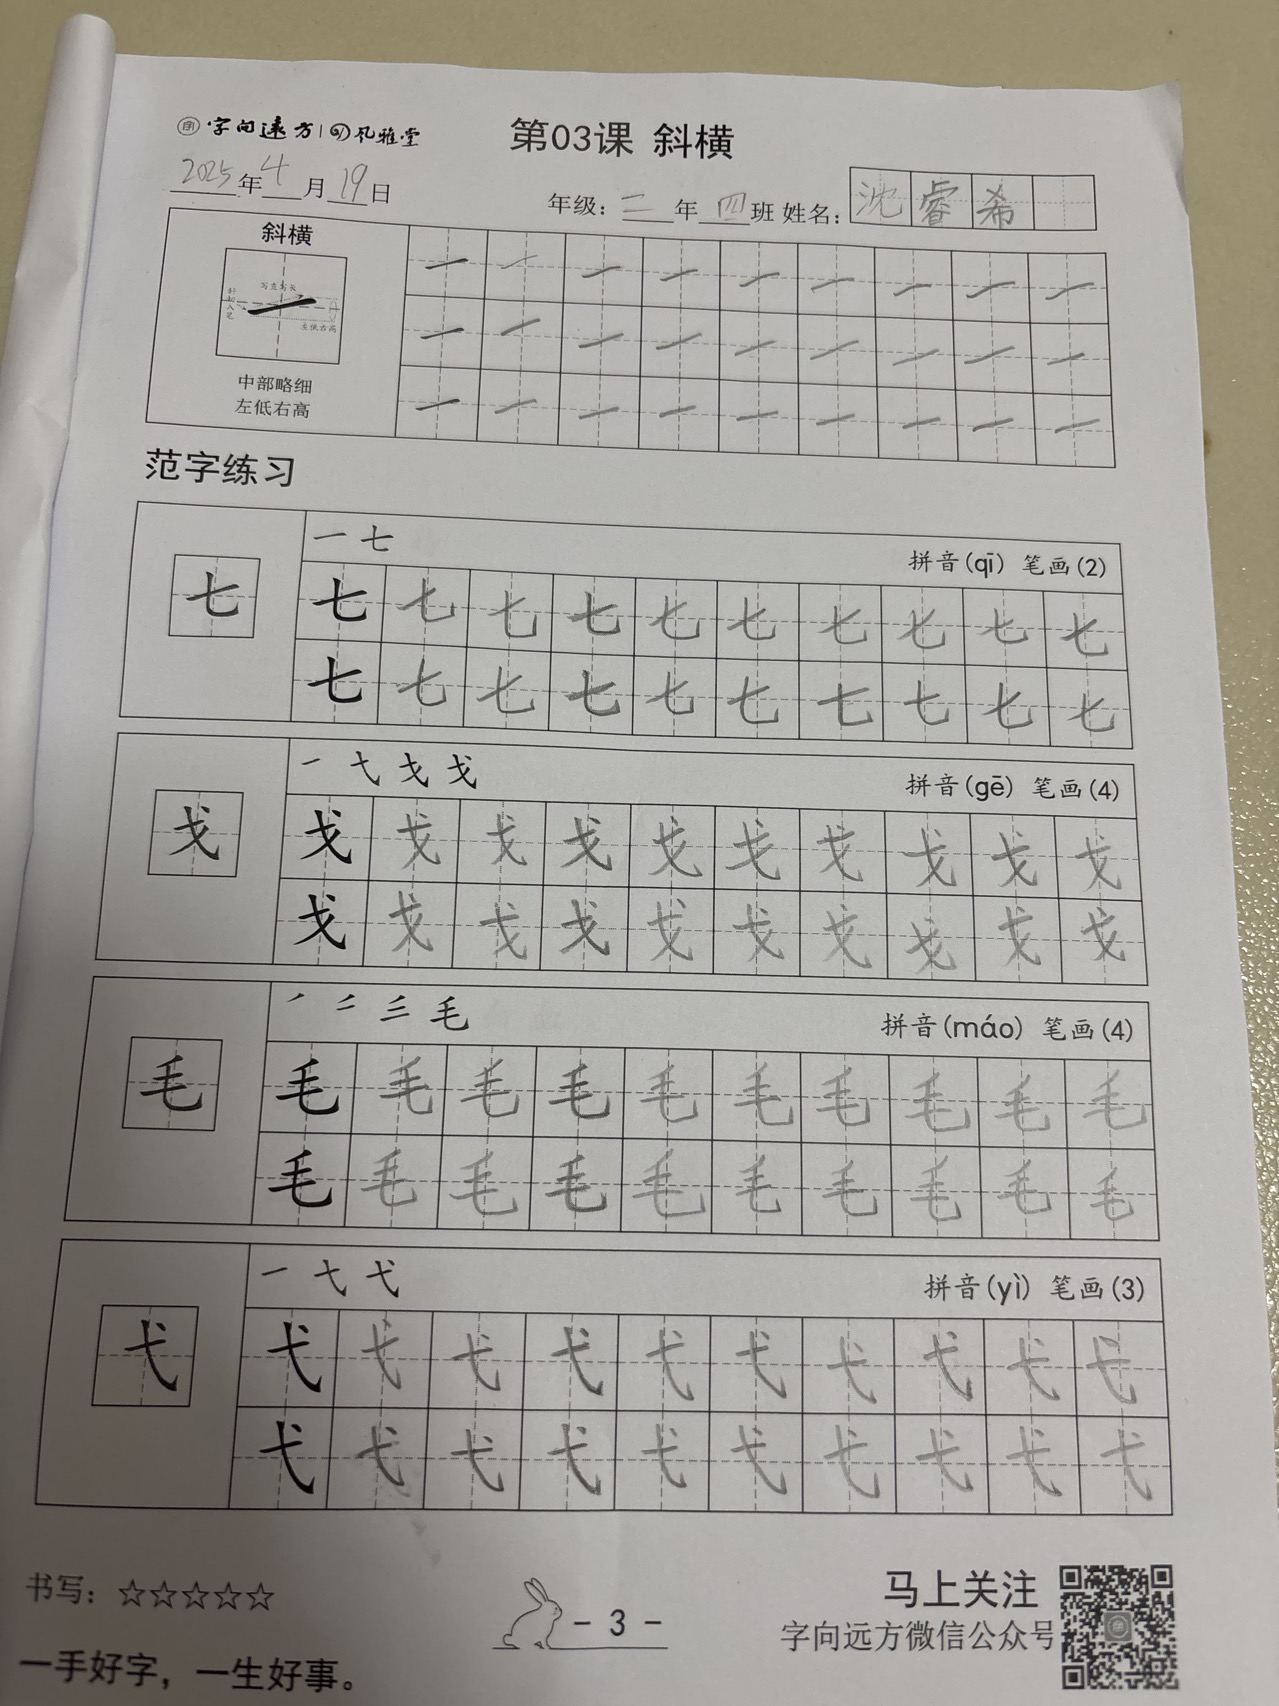 字向远方 | 风雅堂
第03课 斜横
2025年4月19日
年级：二年四班 姓名：沈睿希
斜横
写直写长
斜切入笔
左低右高
中部略细
左低右高
范字练习
一 七 拼音(qī) 笔画(2)
七 七 七 七 七 七 七 七 七 七 七
七 七 七 七 七 七 七 七 七 七
一 弋 戈 戈 拼音(gē) 笔画(4)
戈 戈 戈 戈 戈 戈 戈 戈 戈 戈 戈
戈 戈 戈 戈 戈 戈 戈 戈 戈 戈
毛 拼音(máo) 笔画(4)
毛 毛 毛 毛 毛 毛 毛 毛 毛 毛 毛
毛 毛 毛 毛 毛 毛 毛 毛 毛 毛
一 弋 弋 拼音(yì) 笔画(3)
弋 弋 弋 弋 弋 弋 弋 弋 弋 弋 弋
弋 弋 弋 弋 弋 弋 弋 弋 弋 弋
书写：☆☆☆☆☆
- 3 -
马上关注
字向远方微信公众号
一手好字，一生好事。